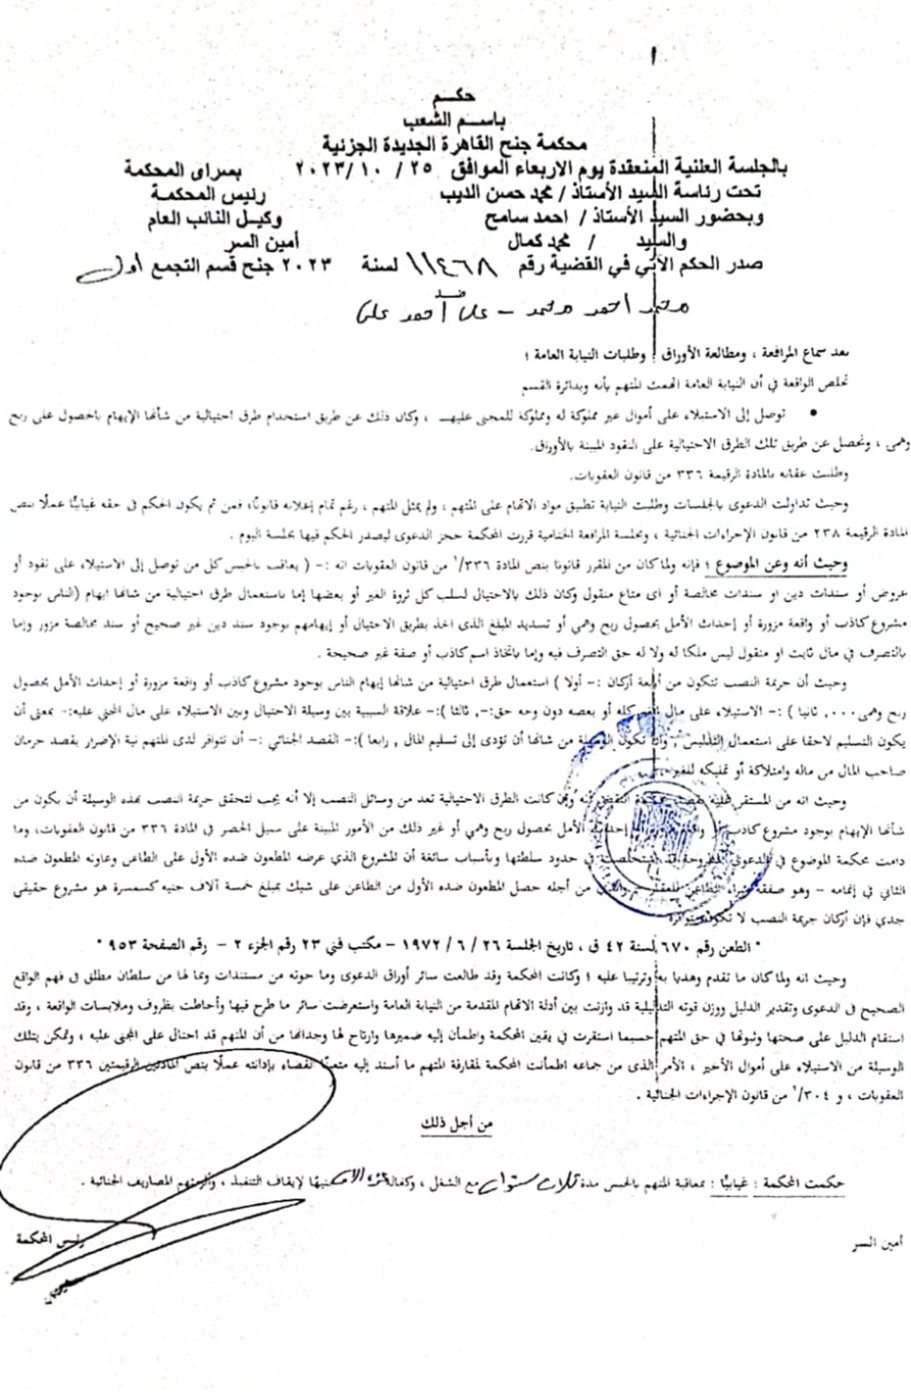 حكـــم
باســـم الشعب
محكمة جنح القاهرة الجديدة الجزئية
بالجلسة العلنية المنعقدة يوم الاربعاء الموافق ٢٥ / ١٠ /٢٠٢٣ بسراى المحكمة
تحت رئاسة السيد الأستاذ / محمد حسن الديب رئيس المحكمــة
وبحضور السيد الأستاذ / احمد سامح وكيـل النائب العام
والسيد / محمد كمال أمين السر
صدر الحكم الآتي في القضية رقم ١١٤٦٨ لسنة ٢٠٢٣ جنح قسم التجمع أول
محمد احمد محمد - ضد على أحمد على
بعد سماع المرافعة ، ومطالعة الأوراق وطلبات النيابة العامة ؛
تخلص الواقعة في أن النيابة العامة اتهمت المتهم بأنه وبدائرة القسم
• توصل إلى الاستيلاء على أموال غير مملوكة له ومملوكة للمجنى عليهـــ ، وكان ذلك عن طريق استخدام طرق احتيالية من شأنها الإيهام بالحصول على ربح
وهمى ، وتحصل عن طريق تلك الطرق الاحتيالية على النقود المبينة بالأوراق.
وطلبت عقابه بالمادة الرقيمة ٣٣٦ من قانون العقوبات.
وحيث تداولت الدعوى بالجلسات وطلبت النيابة تطبيق مواد الاتهام على المتهم ، ولم يمثل المتهم ، رغم تمام إعلانه قانونًا؛ فمن ثم يكون الحكم في حقه غيابيًا عملًا بنص
المادة الرقيمة ٢٣٨ من قانون الإجراءات الجنائية ، وبجلسة المرافعة الختامية قررت المحكمة حجز الدعوى ليصدر الحكم فيها بجلسة اليوم .
وحيث أنه وعن الموضوع ؛ فإنه ولما كان من المقرر قانونا بنص المادة ٣٣٦/١ من قانون العقوبات انه :- ( يعاقب بالحبس كل من توصل إلى الاستيلاء على نقود أو
عروض أو سندات دين او سندات مخالصة أو اى متاع منقول وكان ذلك بالاحتيال لسلب كل ثروة الغير أو بعضها إما باستعمال طرق احتيالية من شانها ايهام (الناس بوجود
مشروع كاذب أو واقعة مزورة أو إحداث الأمل بحصول ربح وهمي أو تسديد المبلغ الذى اخذ بطريق الاحتيال أو إيهامهم بوجود سند دين غير صحيح أو سند مخالصة مزور وإما
بالتصرف في مال ثابت او منقول ليس ملكا له ولا له حق التصرف فيه وإما باتخاذ اسم كاذب أو صفة غير صحيحة .
وحيث أن جريمة النصب تتكون من أربعة أركان :- أولا ) استعمال طرق احتيالية من شانها إيهام الناس بوجود مشروع كاذب أو واقعة مزورة أو إحداث الأمل بحصول
ربح وهمى،،،, ثانيا ) :- الاستيلاء على مال الغير كله أو بعضه دون وجه حق:-, ثالثا ):- علاقة السببية بين وسيلة الاحتيال وبين الاستيلاء على مال المجني عليه:- بمعنى أن
يكون التسليم لاحقا على استعمال التدليس , وان تكون الوسيلة من شانها أن تؤدى إلى تسليم المال , رابعا ):- القصد الجنائي :- أن تتوافر لدى المتهم نية الإضرار بقصد حرمان
صاحب المال من ماله وامتلاكة أو تمليكه للغير .
وحيث انه من المستقر عليه بقضاء محكمة النقض أنه وإن كانت الطرق الاحتيالية تعد من وسائل النصب إلا أنه يجب لتحقق جريمة النصب بهذه الوسيلة أن يكون من
شأنها الإيهام بوجود مشروع كاذب أو واقعة مزورة أو إحداث الأمل بحصول ربح وهمي أو غير ذلك من الأمور المبينة على سبيل الحصر في المادة ٣٣٦ من قانون العقوبات، وما
دامت محكمة الموضوع في الدعوى المطروحة قد استخلصت في حدود سلطتها وبأسباب سائغة أن المشروع الذي عرضه المطعون ضده الأول على الطاعن وعاونه المطعون ضده
الثاني في إتمامه - وهو صفقة شراء الطاعن للعقار - والذي من أجله حصل المطعون ضده الأول من الطاعن على شيك بمبلغ خمسة آلاف جنيه كسمسرة هو مشروع حقيقي
جدي فإن أركان جريمة النصب لا تكون متوافرة
" الطعن رقم ٦٧٠ لسنة ٤٢ ق ، تاريخ الجلسة ٢٦ / ٦ / ١٩٧٢ - مكتب فني ٢٣ رقم الجزء ٢ - رقم الصفحة ٩٥٣ "
وحيث انه ولما كان ما تقدم وهديا به وترتيبا عليه ؛ وكانت المحكمة وقد طالعت سائر أوراق الدعوى وما حوته من مستندات وبما لها من سلطان مطلق فى فهم الواقع
الصحيح فى الدعوى وتقدير الدليل ووزن قوته التدليلية قد وازنت بين أدلة الاتهام المقدمة من النيابة العامة واستعرضت سائر ما طرح فيها وأحاطت بظروف وملابسات الواقعة ، وقد
استقام الدليل على صحتها وثبوتها في حق المتهم حسبما استقرت في يقين المحكمة واطمأن إليه ضميرها وارتاح لها وجدانها من أن المتهم قد احتال على المجنى عليه ، وتمكن بتلك
الوسيلة من الاستيلاء على أموال الأخير ، الأمر الذى من جماعه اطمأنت المحكمة لمقارفة المتهم ما أسند إليه متعينًا القضاء بإدانته عملًا بنص المادتين الرقيمتين ٣٣٦ من قانون
العقوبات ، و ٣٠٤/١ من قانون الإجراءات الجنائية .
من أجل ذلك
حكمت المحكمة : غيابيًا : بمعاقبة المتهم بالحبس مدة ثلاث سنوات مع الشغل ، وكفالة جنيهًا لإيقاف التنفيذ ، وألزمتهم المصاريف الجنائية .
أمين السر رئيس المحكمة